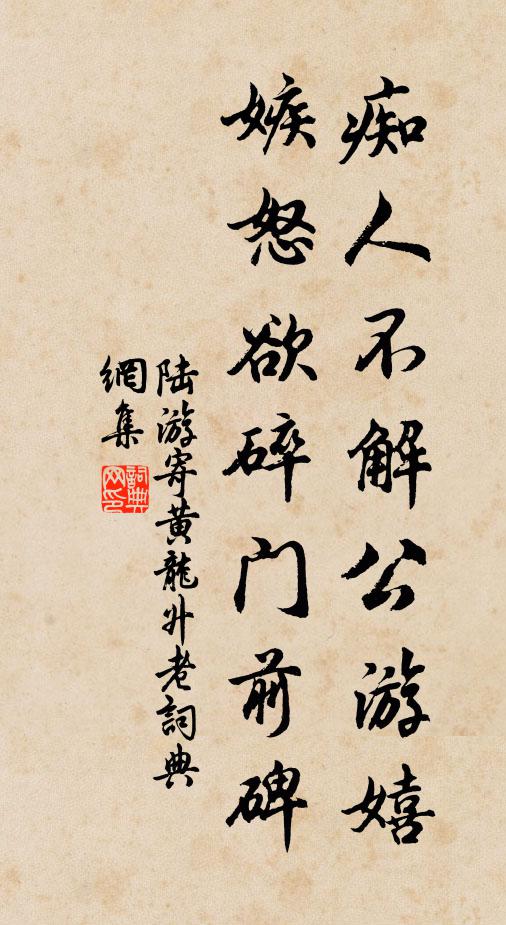 痴人不解公游嬉
嫉怒欲碎门前碑
陆游寄黄龍升老詞典
網集
詞典
网印